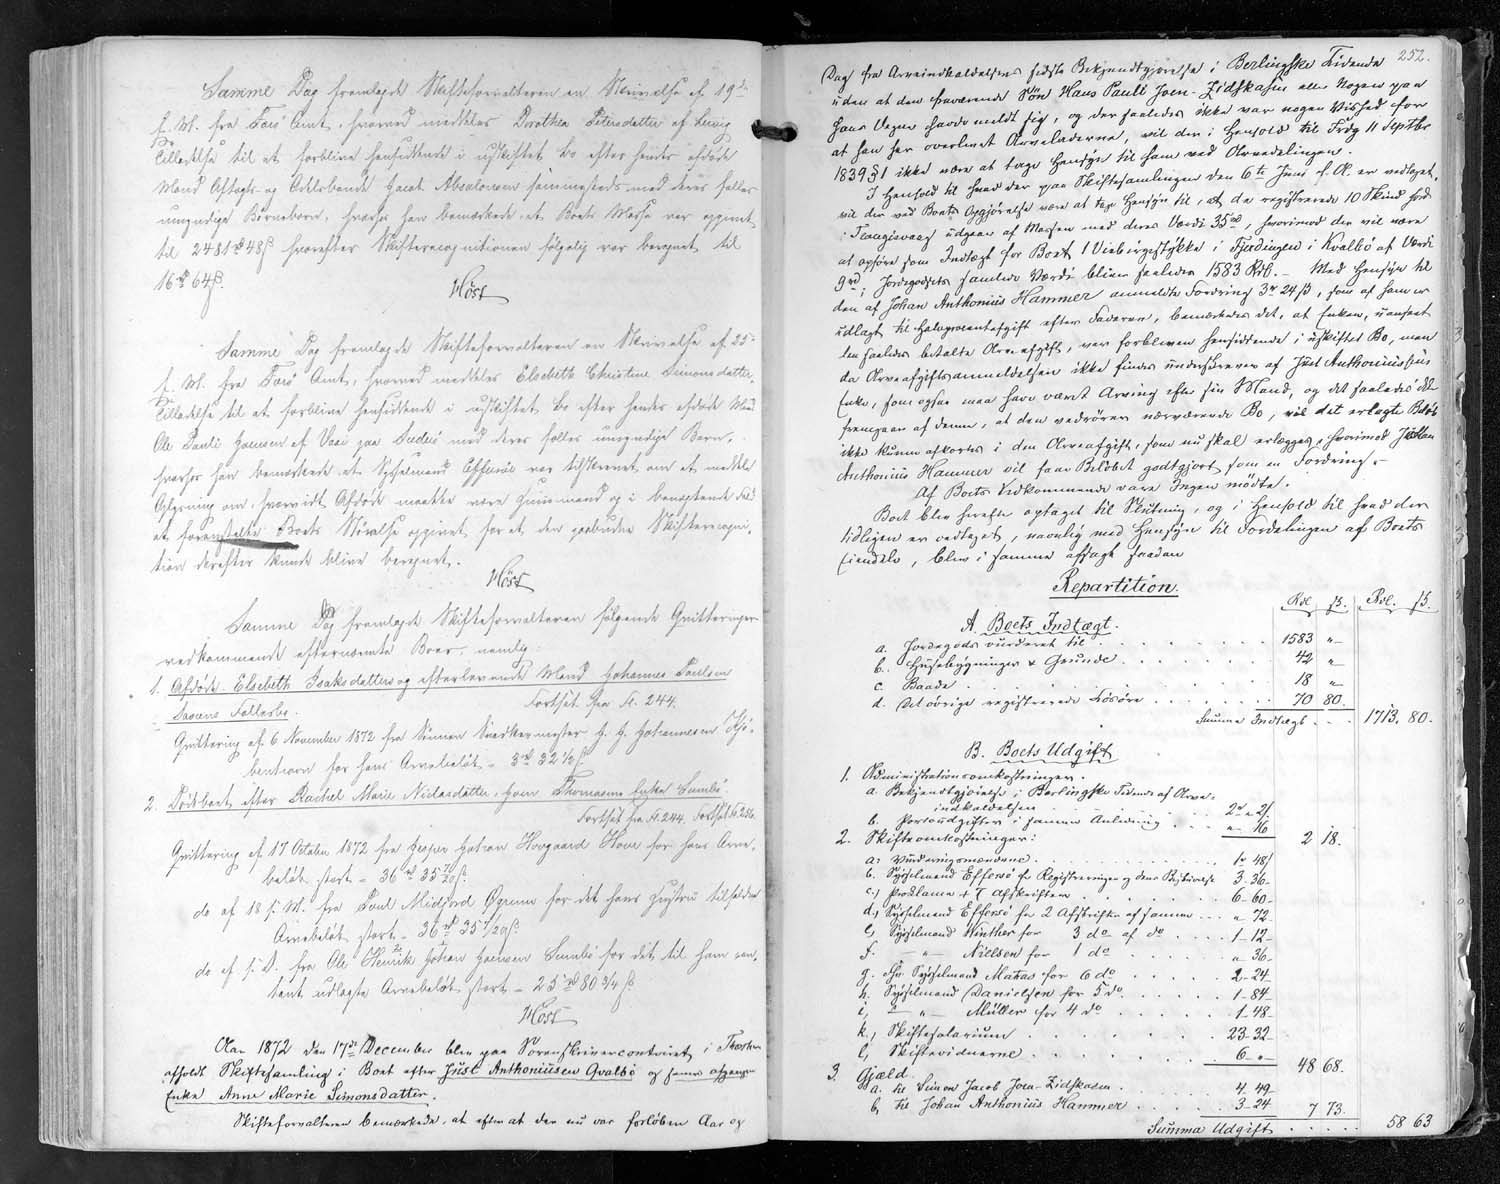 Samme Dag fremlagde Skifteforvalteren en Skrivelse af 19de
f. M. fra Færø Amt, hvorved meddeles Dorothea Petersdatter af
Tilladelse til at forblive hensiddende i uskiftet Bo efter hendes afdøde
Mand Aftægts- og Odelsbonde Jacob Absalonsen sammesteds med deres fælles
umyndige Børnebørn, hvorhos han bemærkede, at Boets Masse var opgivet
til 2481 rd 48 ß hvorefter Skifterecognitionen følgelig var beregnet til
16 rd 64 ß.
Höst
Samme Dag fremlagde Skifteforvalteren en Skrivelse af 25
f. M. fra Færø Amt, hvorved meddeles Elsebeth Christine Simonsdatter,
Tilladelse til at forblive hensiddende i uskiftet Bo efter hendes afdøde Mand
Ole Pauli Hansen af Vaai paa Suderø med deres fælles umyndige Børn,
hvorhos han bemærkede, at Sysselmand Effersöe var tilskrevet om at meddele
Oplysning om, hvorvidt Afdøde maatte være Huusmand og i benægtende Fald
at foranstalte Boets Størrelse opgivet for at den paabudne Skifterecogni-
tion derefter kunde blive beregnet.
Höst
Samme Dag fremlagde Skifteforvalteren følgende Qvitteringer
vedkommende efternævnte Boer, nemlig:
1. Afdøde Elsebeth Isaksdatters og efterlevende Mand Johannes Poulsen
Saxens Fællesbo. Fortsat fra Fl. 244.
Qvittering af 6 November 1872 fra Sönnen Snedkermester J. J. Johannesen Kjö-
benhavn for hans Arvebeløb - 3 rd 32 1/2 ß
2. Dødsboet efter Rachel Marie Niclasdatter, Hoen Thomasens Enke Sumbö.
Fortsat fra Fl. 244. Fortsat Fl. 256.
Qvittering af 17 October 1872 fra Jesper Johan Hovgaard Hove for hans Arve-
beløb, stort - 36 rd 35 ß.
do af 18 f. M. fra Poul Midfjord Øgrum for det hans Hustru tilfaldne
Arvebeløb stort - 36 rd 35 7/20 ß.
do af s. D. fra Ole Henrik Johan Hansen Sumbö for det til ham con-
tant udlagte Arvebeløb, stort - 25 rd 80 3/4 ß
Höst
Aar 1872 den 17de December blev paa Sorenskrivercontoiret i Thorshavn
afholdt Skiftesamling i Boet efter Just Anthoniussen Qvalbö og hans afgangne
Enke Anne Marie Simonsdatter.
Skifteforvalteren bemærkede, at efter at der nu var forløben Aar og
252.
Dag fra Arveindkaldelsens sidste Bekjendtgjørelse i Berlingske Tidende
uden at den fraværende Søn Hans Pauli Joen-Zidskasen eller Nogen paa
hans Vegne havde meldt sig, og der saaledes ikke var nogen Vished for
at han har overlevet Arveladerne, vil der i Henhold til Frdg 11 Septbr
1839 § 1 ikke være at tage Hensyn til ham ved Arvedelingen.
I Henhold til hvad der paa Skiftesamlingen den 6te Juni d. A. er vedtaget,
vil der ved Boets Opgjørelse være at tage Hensyn til, at de registrerede 10 Skind Jord
i Trangisvaag udgaar af Massen med deres Værdi 35 rd, hvorimod der vil være
at opføre som Indtægt for Boet 1 Udebirgestykke i Fjerdingen i Kvalbö af Værdi
9 rd; Jordegodsets samlede Værdi bliver saaledes 1583 Rdl. - Med Hensyn til
den af Johan Anthonius Hammer anmeldte Fordring 3 rd 24 ß, som af ham er
udlagt til Halvprocentafgift efter Faderen, bemærkedes det, at Enken, uanseet
den saaledes betalte Arveafgift, var forbleven hensiddende i uskiftet Bo, men
da Arveafgiftsanmeldelsen ikke findes underskreven af Just Anthoniussens
Enke, som ogsaa maa have været Arving efter sin Mand, og det saaledes ikke
fremgaar af denne, at den vedrører nærværende Bo, vil det erlagte Beløb
ikke kunne afkortes i den Arveafgift, som nu skal erlægges, hvorimod Johan
Anthonius Hammer vil faae Beløbet godtgjort som en Fordring.-
Af Boets Vedkommende vare Ingen mødte.
Boet blev herefter optaget til Slutning, og i Henhold til hvad der
tidligere er vedtaget, navnlig med Hensyn til Fordelingen af Boets
Eiendele, blev i samme afsagt saadan
Repartition.
Rdl. ß. Rdl. ß.
A. Boets Indtægt.
a. Jordegods vurderet til . . . 1583 "
b. Husebygninger & Grunde . . . 42 "
c. Baade . . . 18 "
d. Det øvrige registrerede Løsøre . . . 70 80.
Summa Indtægt . . . 1713. 80.
B. Boets Udgift
1. Administrationsomkostninger.
a. Bekjendtgjørelse i Berlingske Tidende af Arve-
indkaldelsen . . . 2 rd " 2 ß
b. Portoudgifter i samme Anledning . . . " 16
2 18.
2. Skifteomkostninger:
a. Vurderingsmændene . . . 1 rd 48 ß
b. Sysselmand Effersö for Registreringen og dens Beskrivelse 3-36-
c, Proclama + 7 Afskrifter . . . 6-60-
d, Sysselmand Effersö for 2 Afskrifter af samme . . . " 72
e, Sysselmand Winther for 3 do af do . . . 1-12-
f. - " - Nielsen for 1 do . . . " 36-
g. Hr. Sysselmand Matras for 6 do . . . 2-24-
h. Sysselmand Danielsen for 5 do . . . 1-84
i, - " - Müller for 4 do . . . 1-48-
k, Skiftesalarium . . . 23-32-
l, Skiftevidnerne . . . 6 - "
48 68.
3. Gjæld.
a. til Simon Jacob Joen-Zidskasen . . . 4. 49-
b, til Johan Anthonius Hammer . . . 3-24
7 73.
Summa Udgift . . . 58 63